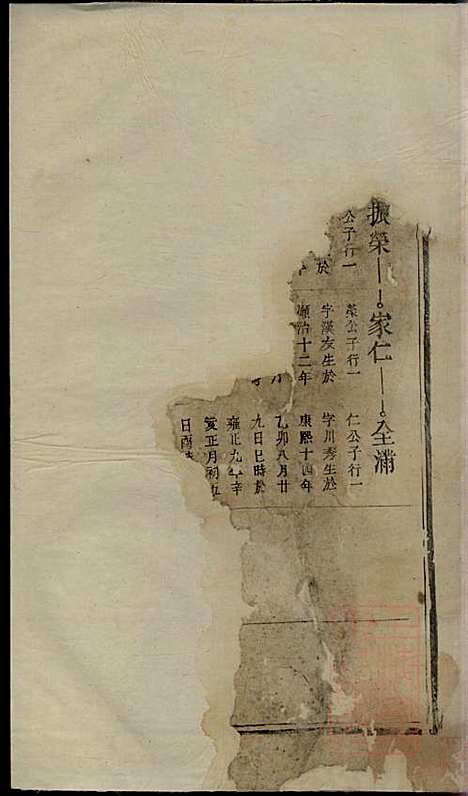 振榮 家仁 全浦
公子行一
於
榮公子行一
字漢友生於
順治十二年
仁公子行一
字川秀生於
康熙十四年
乙卯八月廿
九日巳時於
雍正九年辛
亥正月初五
日酉